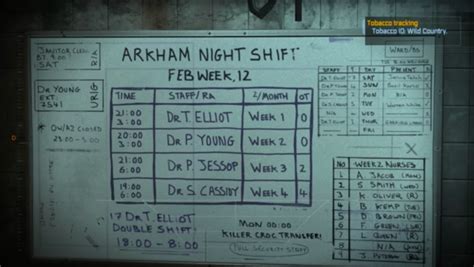 Tobacco tracking
Tobacco ID: Wild Country.
JANITOR
SAT
DR YOUNG
EXT.
7541
ARKHAM NIGHT SHIFT
FEB WEEK, 12
TIME STAFF/RA 2/MONTH OT
21:00 3:00 DR T. ELLIOT WEEK 1 0
20:00 3:00 DR P. YOUNG WEEK 2 0
21:00 6:00 DR P. JESSOP WEEK 3 2
19:00 6:00 DR S. CASSIDY WEEK 4 4
17 DR T. ELLIOT
DOUBLE SHIFT
18:00 - 8:00
MON 00:00
KILLER CROC TRANSFER!
FULL SECURITY STAFF
SAT
SUN
MON
TUE
WED
THUR
FRI
NO WEEK 2 NURSES
1 A JACOB (MON)
2 S SMITH (WED)
3 K OLIVER (R)
4 B KEMP (TUE)
5 D BROWN (FRI)
6 F GREEN
7 L QUEEN (R)
8 N/A
9 J. PETERSON